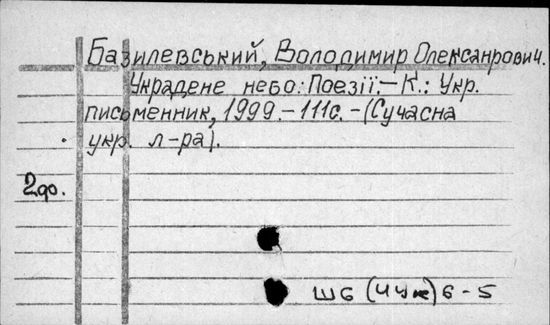 Базилевський, Володимир Олексанрович.
Украдене небо: Поезії.– К.: Укр.
письменник, 1999.– 111с. – (Сучасна
укр. л-ра).
2до.
Ш6 (4Ук) 6-5